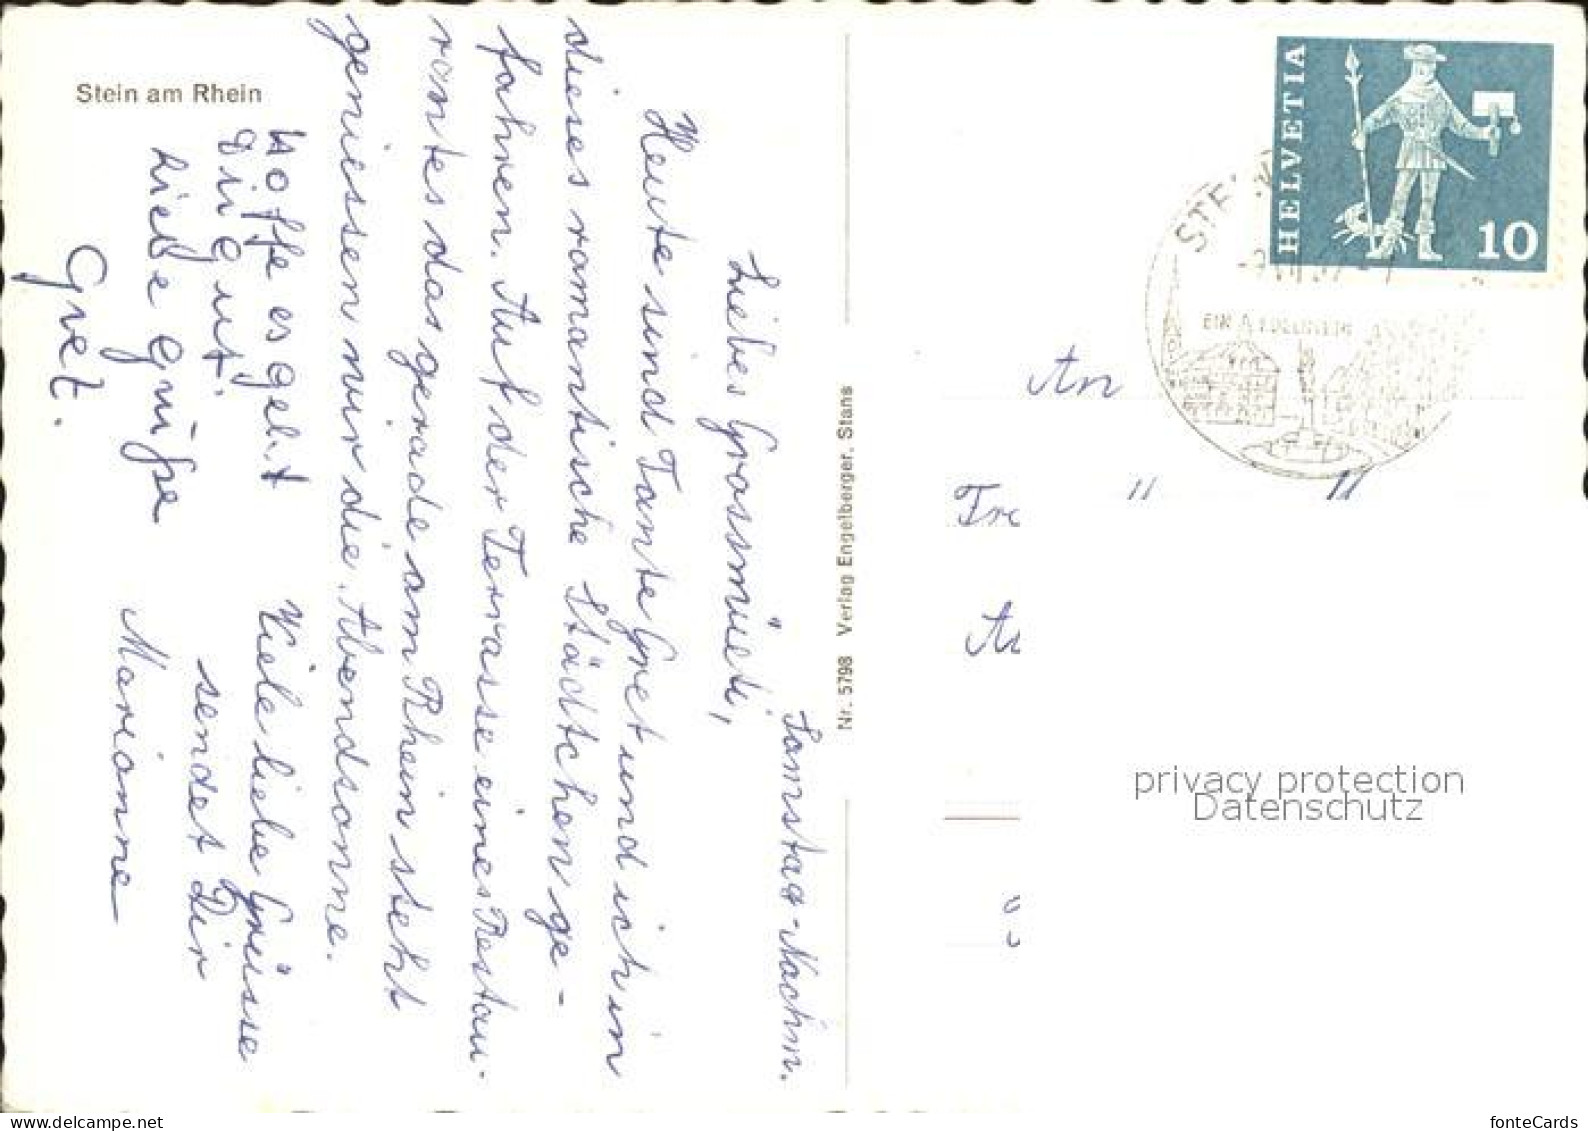 Stein am Rhein
Samstag-Nachm.
Liebes Grossmüeti,
Heute sind Tante Gret und ich in
dieses romantische Städtchen ge-
fahren. Auf der Terrasse eines Restau-
rantes das gerade am Rhein steht
geniessen wir die Abendsonne.
Viele liebe Grüsse
sendet Dir
Marianne
Hoffe es geht
Dir gut.
Liebe Grüße
Gret.
Nr. 5798 Verlag Engelberger, Stans
HELVETIA
10
STEIN
EIN
An
" "
privacy protection
Datenschutz
delcampe.net
fonteCards